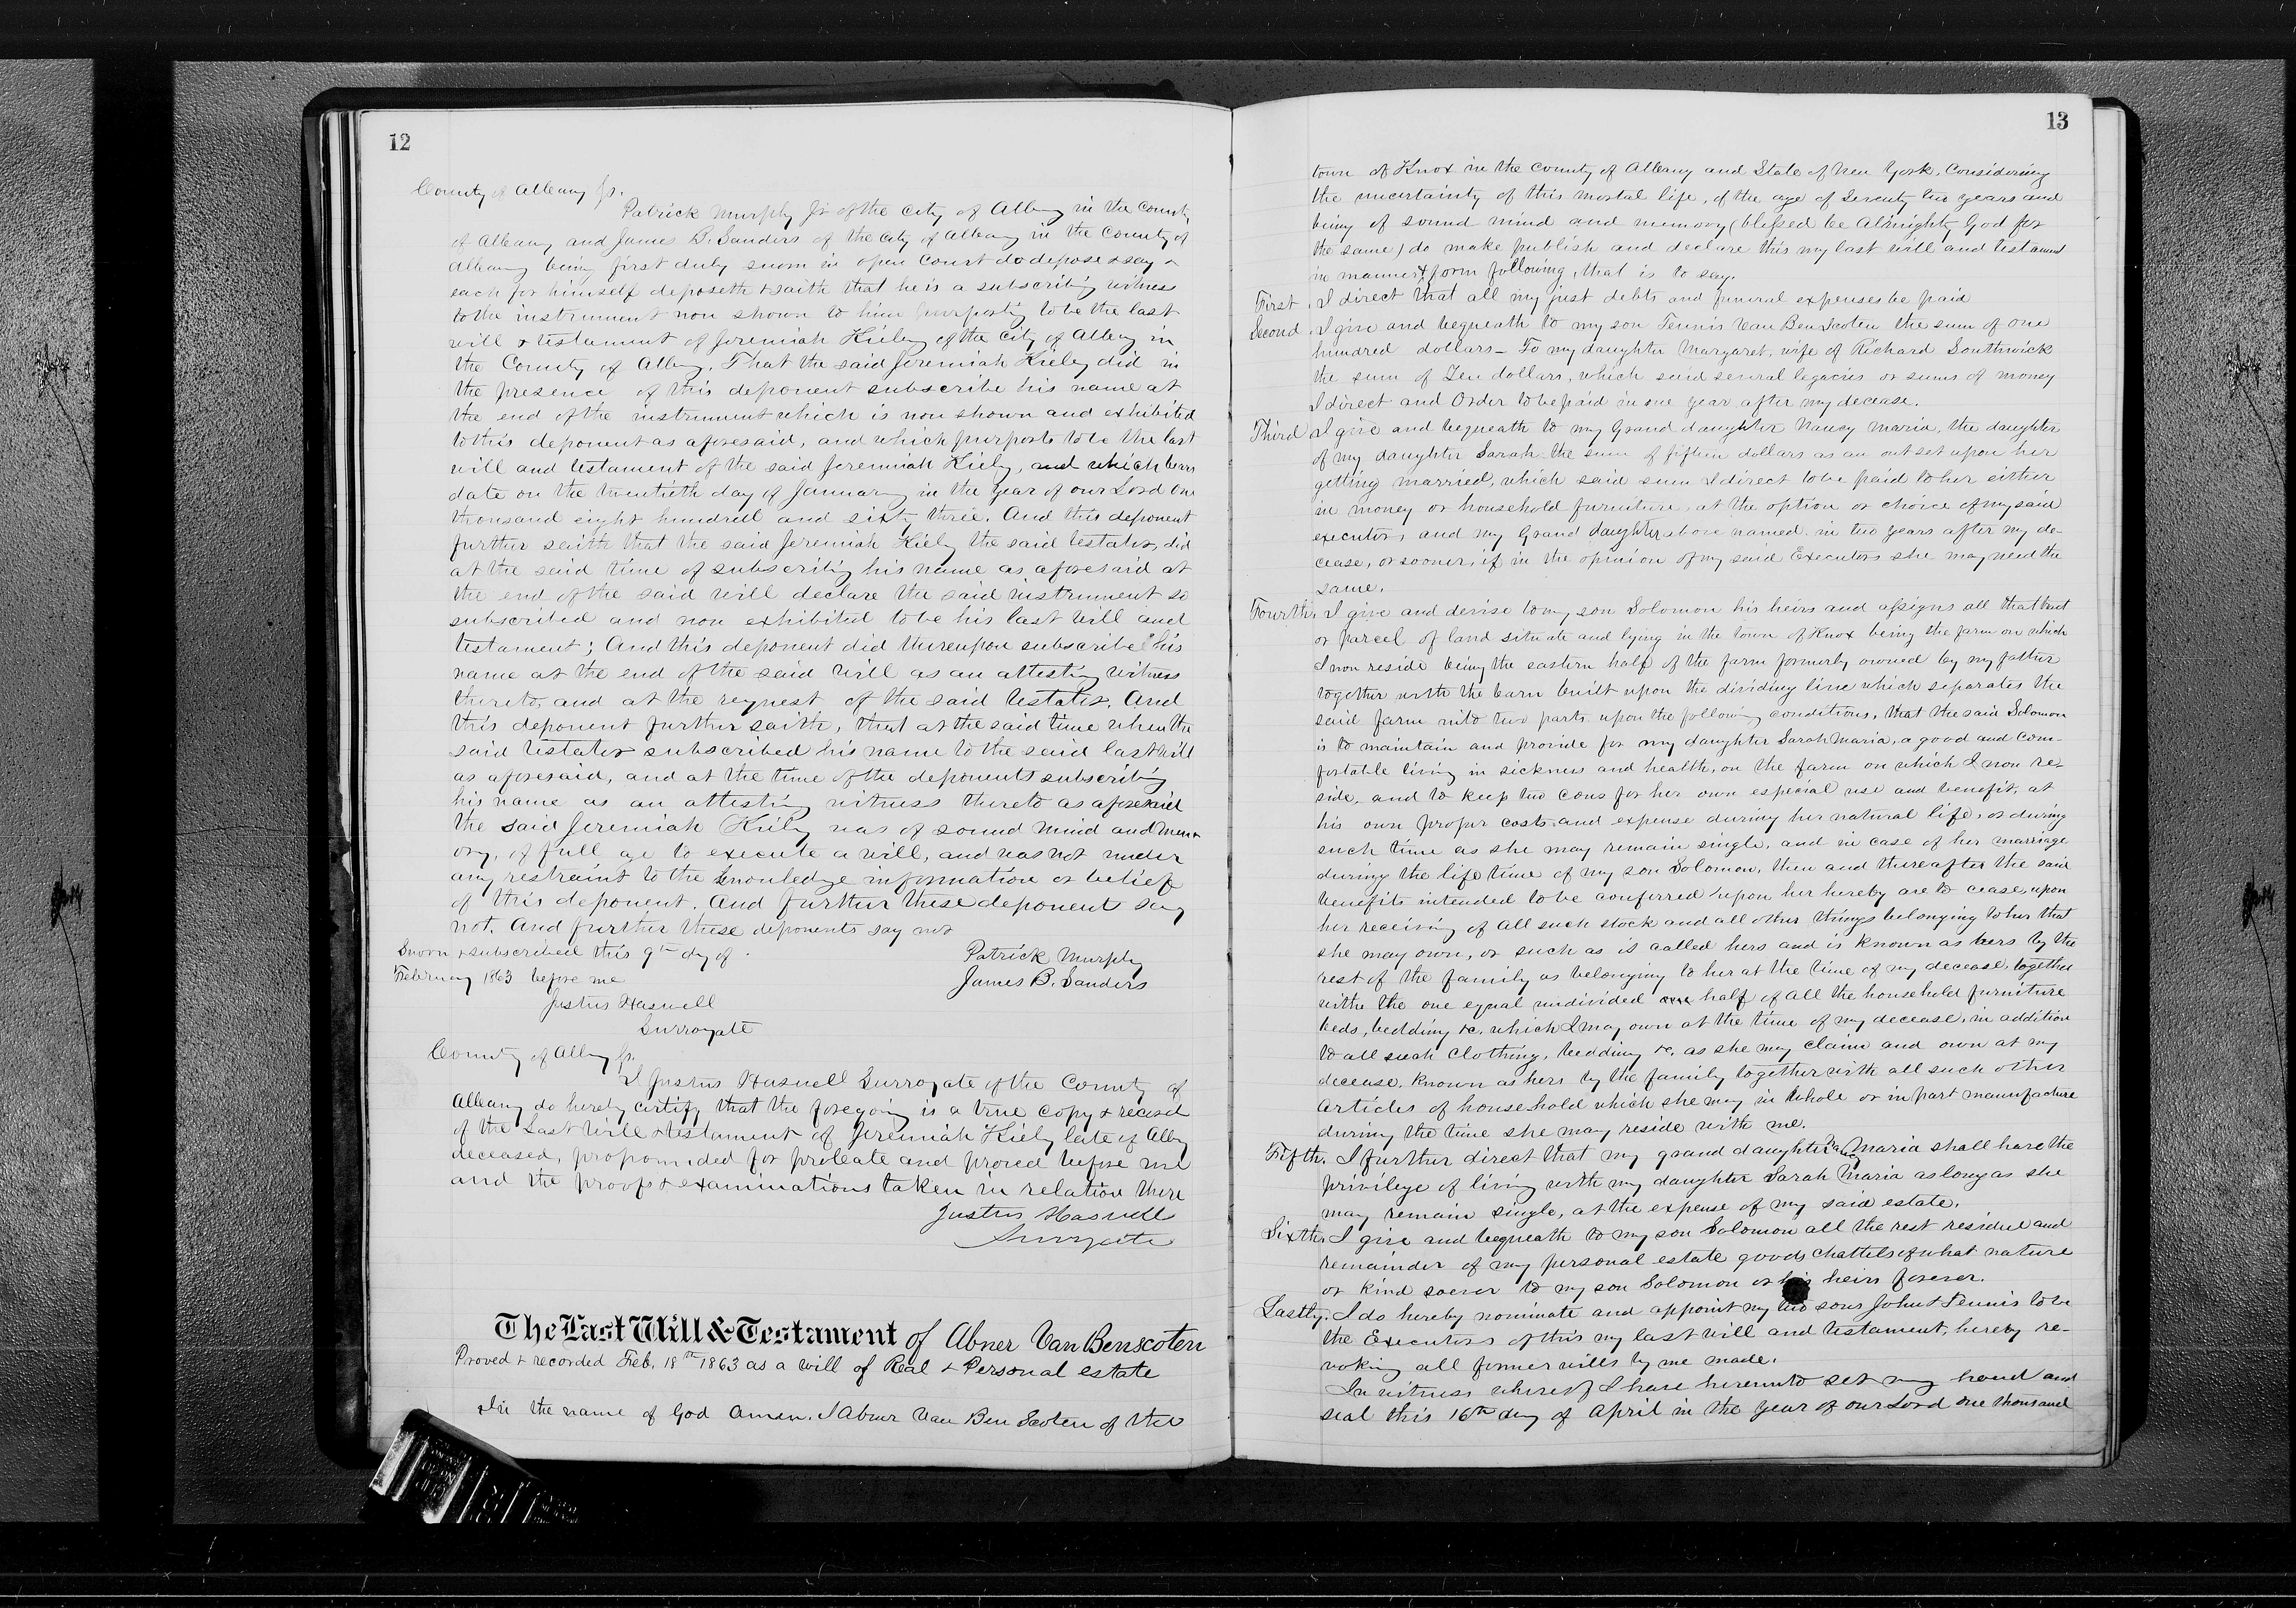 12
County of Albany Ss.
Patrick Murphy Jr of the City of Albany in the County
of Albany and James B. Sanders of the City of Albany in the County of
Albany being first duly sworn in open Court do depose & say &
each for himself deposeth & saith that he is a subscribing witness
to the instrument now shown to him purporting to be the last
will & testament of Jeremiah Kieley of the City of Albany in
the County of Albany. That the said Jeremiah Kieley did in
the presence of this deponent subscribe his name at
the end of the instrument which is now shown and exhibited
to this deponent as aforesaid, and which purports to be the last
will and testament of the said Jeremiah Kiely, and which bears
date on the twentieth day of January in the year of our Lord one
thousand eight hundred and sixty three. And this deponent
further saith that the said Jeremiah Kiely the said testator, did
at the said time of subscribing his name as aforesaid at
the end of the said will declare the said instrument so
subscribed and now exhibited to be his last will and
testament; And this deponent did thereupon subscribe his
name at the end of the said will as an attesting witness
thereto, and at the request of the said testator. And
this deponent further saith, that at the said time when the
said testator subscribed his name to the said last will
as aforesaid, and at the time of the deponents subscribing
his name as an attesting witness thereto as aforesaid
the said Jeremiah Kiely was of sound mind and mem
ory, of full age to execute a will, and was not under
any restraint to the knowledge information or belief
of this deponent. And further these deponent say
not. And further these deponents say not
Sworn & subscribed this 9th day of
February 1863 before me
Justus Haswell
Surrogate
Patrick Murphy
James B. Sanders
County of Albany Ss.
I Justus Haswell Surrogate of the County of
Albany do hereby certify that the foregoing is a true copy & record
of the Last Will & testament of Jeremiah Kiely late of Albany
deceased, propounded for probate and proved before me
and the proofs & examinations taken in relation there
Justus Haswell
Surrogate
The Last Will & Testament of Abner Van Benscoten
Proved & recorded Feb. 18th 1863 as a will of Real & Personal estate
In the name of God Amen. I Abner Van Ben Scoten of the
13
town of Knox in the county of Albany and State of New York, Considering
the uncertainty of this mortal life, of the age of Seventy two years and
being of sound mind and memory (blessed be Almighty God for
the same) do make publish and declare this my last will and testament
in manner & form following, that is to say.
First. I direct that all my just debts and funeral expenses be paid
Second. I give and bequeath to my son Tennis Van Ben Scoten the sum of one
hundred dollars - To my daughter Margaret, wife of Richard Southwick
the sum of Ten dollars, which said several legacies or sums of money
I direct and Order to be paid in one year after my decease.
Third I give and bequeath to my Grand daughter Nancy Maria, the daughter
of my daughter Sarah the sum of fifteen dollars as an outset upon her
getting married, which said sum I direct to be paid to her either
in money or household furniture, at the option or choice of my said
executors and my Grand daughter above named in two years after my de-
cease, or sooner, if in the opinion of my said Executors she may need the
same.
Fourth. I give and devise to my son Solomon his heirs and assigns all that tract
or parcel of land situate and lying in the town of Knox being the farm on which
I now reside being the eastern half of the farm formerly owned by my father
together with the barn built upon the dividing line which separates the
said farm into two parts upon the following conditions, that the said Solomon
is to maintain and provide for my daughter Sarah Maria, a good and com-
fortable living in sickness and health, on the farm on which I now re-
side, and to keep two cows for her own especial use and benefit, at
his own proper costs and expense during her natural life, or during
such time as she may remain single, and in case of her marriage
during the life time of my son Solomon, then and thereafter the said
benefits intended to be conferred upon her hereby are to cease, upon
her receiving of all such stock and all other things belonging to her that
she may own, or such as is called hers and is known as hers by the
rest of the family as belonging to her at the time of my decease, together
with the one equal undivided one half of all the household furniture
beds, bedding &c. which I may own at the time of my decease, in addition
to all such clothing, bedding &c. as she may claim and own at my
decease, known as hers by the family together with all such other
articles of household which she may in whole or in part manufacture
during the time she may reside with me.
Fifth. I further direct that my grand daughter Nancy Maria shall have the
privilege of living with my daughter Sarah Maria as long as she
may remain single, at the expense of my said estate.
Sixth. I give and bequeath to my son Solomon all the rest residue and
remainder of my personal estate goods chattels of what nature
or kind soever to my son Solomon or his heirs forever.
Lastly. I do hereby nominate and appoint my two sons John & Tennis to be
the Executors of this my last will and testament, hereby re-
voking all former wills by me made.
In witness whereof I have hereunto set my hand and
seal this 16th day of April in the year of our Lord one thousand